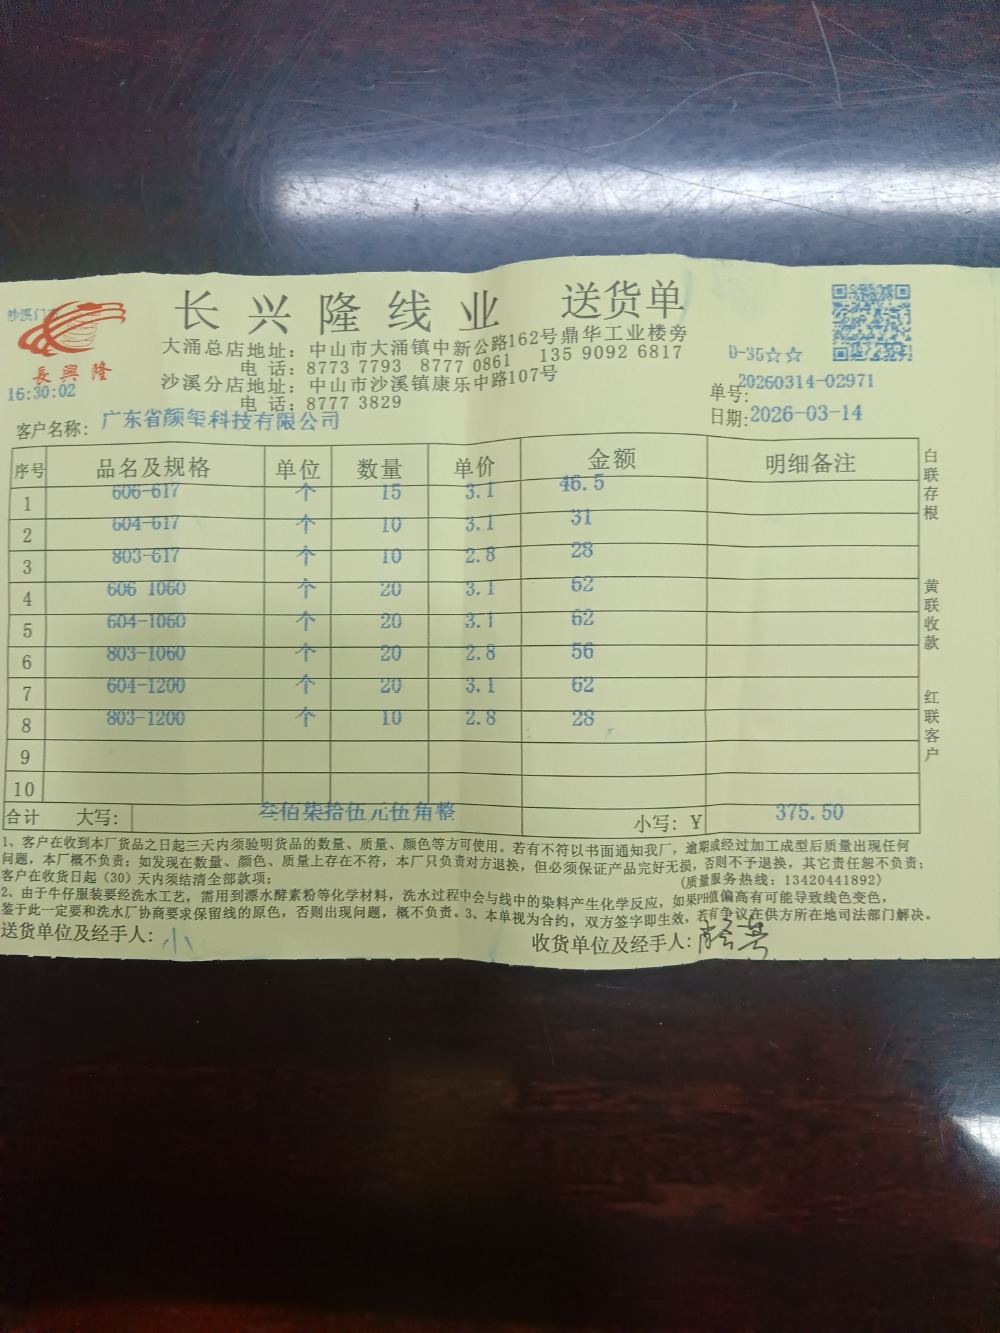 长兴隆线业 送货单
沙溪门
長興隆
16:30:02
大涌总店地址：中山市大涌镇中新公路162号鼎华工业楼旁
电 话：8773 7793 8777 0861 135 9092 6817
沙溪分店地址：中山市沙溪镇康乐中路107号
电 话：8777 3829
D-35☆☆
单号：20260314-02971
日期：2026-03-14
客户名称：广东省颜玺科技有限公司
序号 品名及规格 单位 数量 单价 金额 明细备注
1 606-617 个 15 3.1 46.5
2 604-617 个 10 3.1 31
3 803-617 个 10 2.8 28
4 606-1060 个 20 3.1 62
5 604-1060 个 20 3.1 62
6 803-1060 个 20 2.8 56
7 604-1200 个 20 3.1 62
8 803-1200 个 10 2.8 28
9
10
合计 大写：叁佰柒拾伍元伍角整 小写：Y 375.50
白联存根
黄联收款
红联客户
1、客户在收到本厂货品之日起三天内须验明货品的数量、质量、颜色等方可使用。若有不符以书面通知我厂，逾期或经过加工成型后质量出现任何
问题，本厂概不负责；如发现在数量、颜色、质量上存在不符，本厂只负责对方退换，但必须保证产品完好无损，否则不予退换，其它责任恕不负责；
客户在收货日起（30）天内须结清全部款项； （质量服务热线：13420441892）
2、由于牛仔服装要经洗水工艺，需用到漂水酵素粉等化学材料，洗水过程中会与线中的染料产生化学反应，如果PH值偏高有可能导致线色变色，
鉴于此一定要和洗水厂协商要求保留线的原色，否则出现问题，概不负责。3、本单视为合约，双方签字即生效，若有争议在供方所在地司法部门解决。
送货单位及经手人：小
收货单位及经手人：